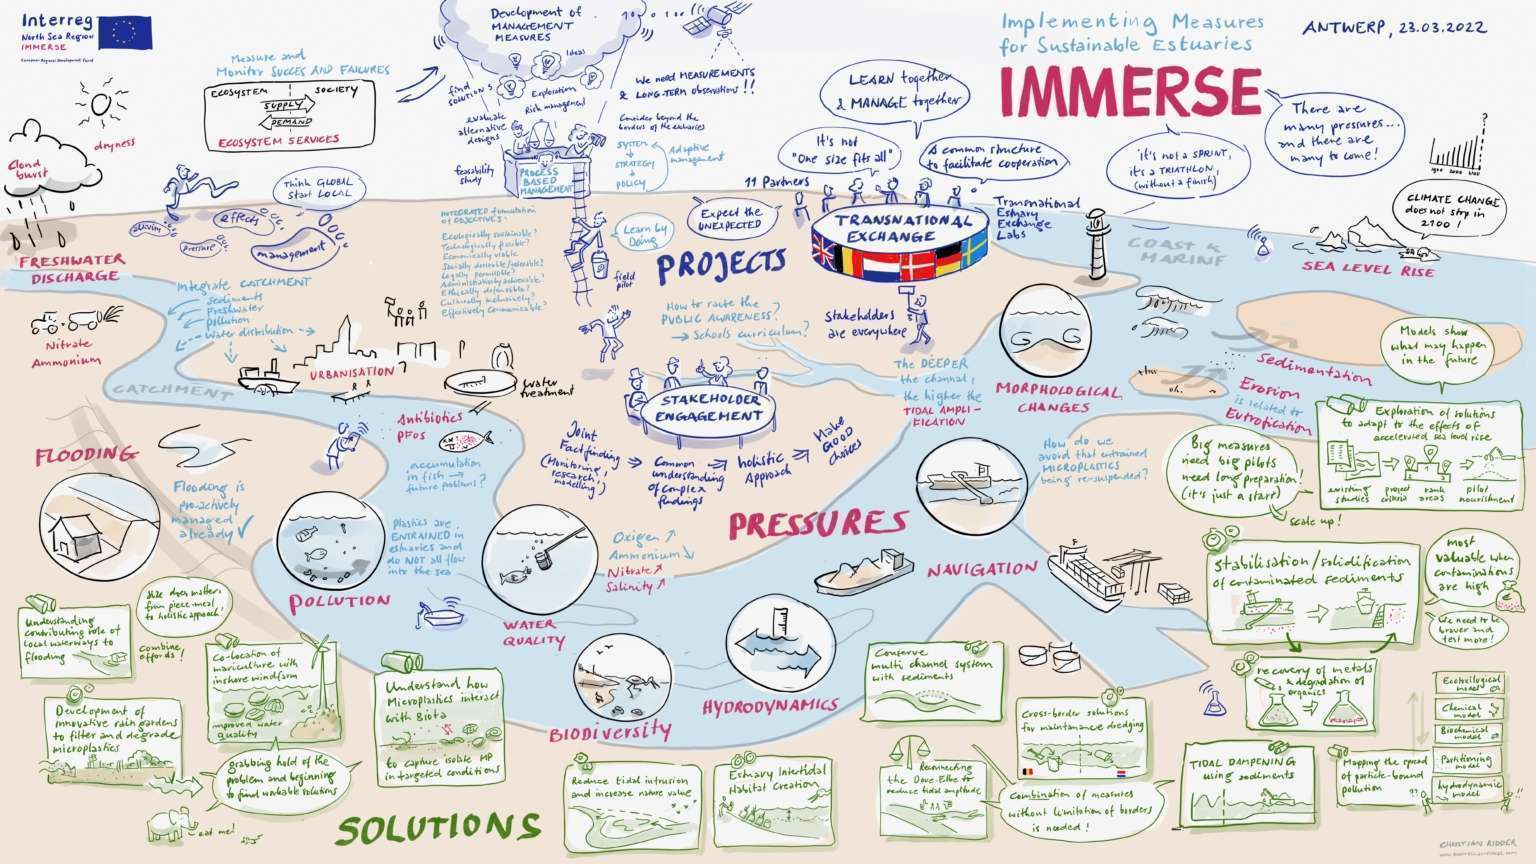 Interreg
North Sea Region
IMMERSE
European Regional Development Fund
Measure and
Monitor SUCCES AND FAILURES
ECOSYSTEM
SOCIETY
SUPPLY
DEMAND
ECOSYSTEM SERVICES
dryness
Cloud
burst
Think GLOBAL
Start LOCAL
effects
pressure
management
FRESHWATER
DISCHARGE
Development of
MANAGEMENT
MEASURES
Ideas
find
SOLUTIONS
Exploration
Risk management
evaluate
alternative
designs
feasibility
study
PROCESS
BASED
MANAGEMENT
We need MEASUREMENTS
& LONG-TERM observations!!
Consider beyond the
borders of the estuaries
SYSTEM
STRATEGY
POLICY
Adaptive
management
LEARN together
& MANAGE together
It's not
"One size fits all"
A common structure
to facilitate cooperation
11 Partners
TRANSNATIONAL
EXCHANGE
Transnational
Estuary
Exchange
Labs
Expect the
UNEXPECTED
Learn by
Doing
field
pilot
PROJECTS
Stakeholders
are everywhere
Implementing Measures
for Sustainable Estuaries
IMMERSE
ANTWERP, 23.03.2022
There are
many pressures...
and there are
many to come!
it's not a SPRINT,
it's a TRIATHLON,
(without a finish)
?
CLIMATE CHANGE
does not stop in
2100!
COAST &
MARINE
SEA LEVEL RISE
INTEGRATED formulation
of OBJECTIVES:
Ecologically sustainable?
Technologically feasible?
Economically viable
Socially desirable/tolerable?
Legally permissible?
Administratively achievable?
Ethically defensible?
Culturally inclusively?
Effectively Communicable?
Integrate CATCHMENT
sediments
Freshwater
pollution
Water distribution
Nitrate
Ammonium
CATCHMENT
URBANISATION
water
treatment
Antibiotics
PFOS
accumulation
in fish →
future problems?
How to raise the
PUBLIC AWARENESS?
→ Schools curriculum?
STAKEHOLDER
ENGAGEMENT
Joint
Fact finding
(Monitoring,
research,
modelling)
Common
understanding
of complex
findings
holistic
Approach
Make
GOOD
choices
The DEEPER
the channel,
the higher the
TIDAL AMPLI-
FICATION
MORPHOLOGICAL
CHANGES
Sedimentation
Erosion
is related to
Eutrofication
Models show
what may happen
in the future
Exploration of solutions
to adapt to the effects of
accelerated sea level rise
existing
studies
project
criteria
rank
areas
pilot
nourishment
Big measures
need big pilots
need long preparation!
(it's just a start)
scale up!
How do we
avoid that entrained
MICROPLASTICS
being re-suspended?
FLOODING
Flooding is
pro-actively
managed
already
POLLUTION
Plastics are
ENTRAINED in
estuaries and
do NOT all flow
into the sea
WATER
QUALITY
Oxigen
Ammonium
Nitrate
Salinity
PRESSURES
NAVIGATION
BIODIVERSITY
HYDRODYNAMICS
Stabilisation/solidification
of contaminated sediments
most
valuable when
contaminations
are high
We need to be
braver and
test more!
recovery of metals
& degradation of
organics
Understanding
contributing role of
local waterways to
flooding
Size does matter:
from piece-meal
to holistic approach!
Combine
efforts!
Co-location of
mariculture with
inshore windfarm
improved water
quality
Development of
innovative rain gardens
to filter and degrade
microplastics
grabbing hold of the
problem and beginning
to find workable solutions
eat me!
Understand how
Microplastics interact
with Biota
to capture isolate MP
in targeted conditions
SOLUTIONS
Reduce tidal intrusion
and increase nature value
Estuary Intertidal
Habitat Creation
Conserve
multi channel system
with sediments
Reconnecting
the Dove-Elbe to
reduce tidal amplitude
Cross-border solutions
for maintanance dredging
Combination of measures
without limitation of borders
is needed!
TIDAL DAMPENING
using sediments
Mapping the spread
of particle-bound
pollution
Ecotoxilogical
model
Chemical
model
Biochemical
model
Partitioning
model
hydrodynamic
model
??
!!
CHRISTIAN RIDDER